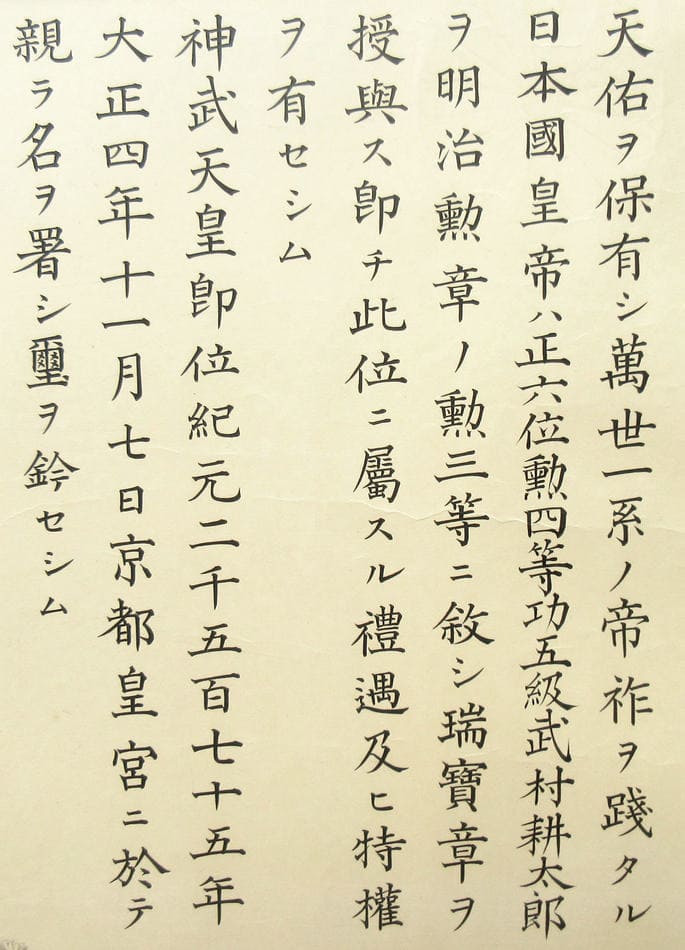 天佑ヲ保有シ萬世一系ノ帝祚ヲ踐タル
日本國皇帝ハ正六位勲四等功五級武村耕太郎
ヲ明治勲章ノ勲三等ニ敘シ瑞寶章ヲ
授與ス卽チ此位ニ屬スル禮遇及ヒ特權
ヲ有セシム
神武天皇卽位紀元二千五百七十五年
大正四年十一月七日京都皇宮ニ於テ
親ラ名ヲ署シ璽ヲ鈐セシム